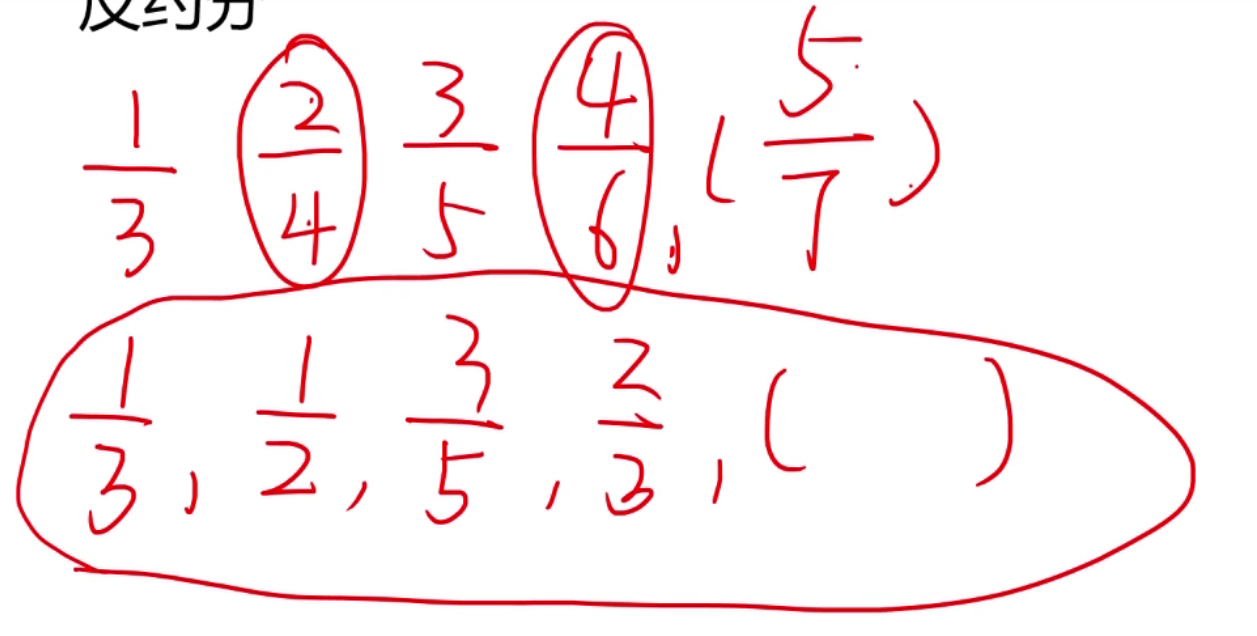 反约分
1/3 2/4 3/5 4/6 , ( 5/7 )
1/3 , 1/2 , 3/5 , 2/3 , ( )